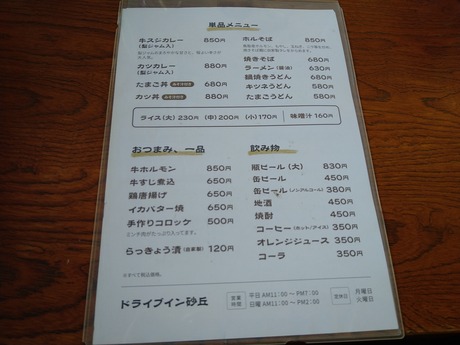 単品メニュー
牛スジカレー 850円
(梨ジャム入)
カツカレー 880円
(梨ジャム入)
たまご丼 みそ汁付き 680円
カツ丼 みそ汁付き 880円
ホルそば 850円
焼きそば 680円
ラーメン(醤油) 630円
鍋焼きうどん 680円
キツネうどん 580円
たまごうどん 580円
ライス(大) 230円 (中) 200円 (小) 170円 味噌汁 160円
おつまみ、一品
牛ホルモン 850円
牛すじ煮込 650円
鶏唐揚げ 650円
イカバター焼 650円
手作りコロッケ 500円
ミンチ肉がたっぷり入ってます。
らっきょう漬(自家製) 120円
飲み物
瓶ビール(大) 830円
缶ビール 450円
缶ビール(ノンアルコール) 380円
地酒 450円
焼酎 450円
コーヒー(ホット/アイス) 350円
オレンジジュース 350円
コーラ 350円
※すべて税込価格。
ドライブイン砂丘
営業時間 平日 AM11:00〜PM7:00
日曜 AM11:00〜PM2:00
定休日 月曜日
火曜日